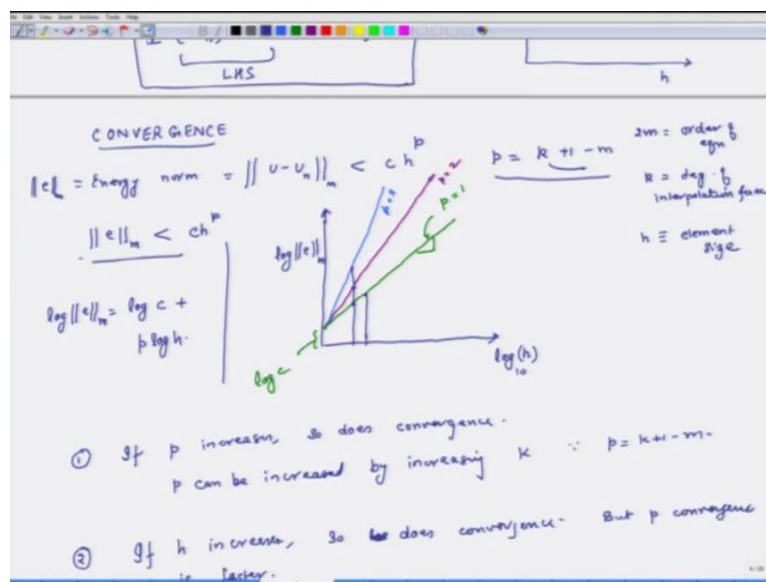 File Edit View Insert Actions Tools Help
LHS
h
CONVERGENCE
||e||m = Energy norm = || u - un ||m < c h^p
p = k + 1 - m
2m = order of eqn
k = deg. of interpolation func
h ≡ element size
||e||m < ch^p
log||e||m = log c + p log h.
log||e||m
p=3
p=2
p=1
log c
log10(h)
① If p increases, so does convergence.
p can be increased by increasing k ∵ p = k+1-m.
② If h increases, so does convergence. But p convergence
is faster.